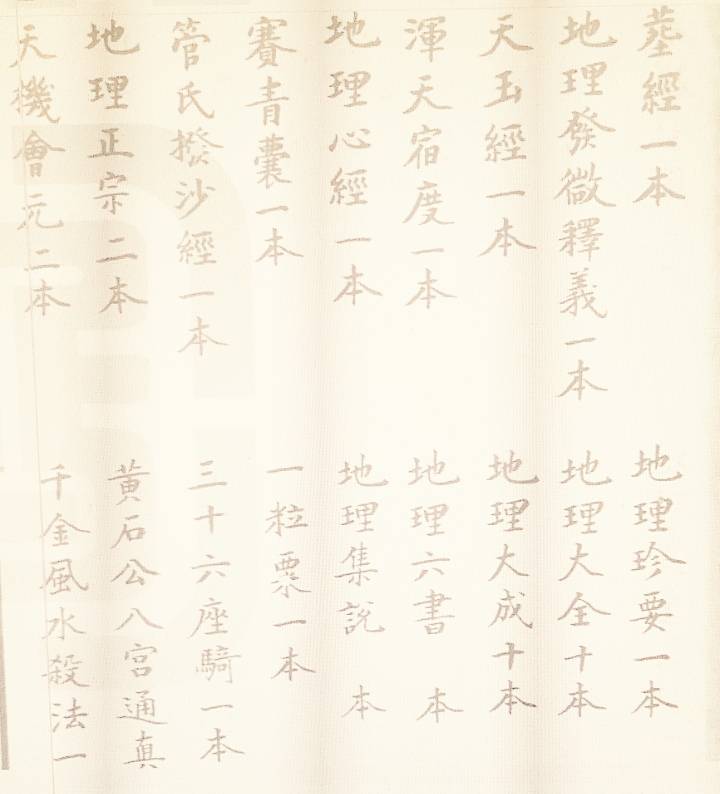 葬經一本
地理珍要一本
地理發微釋義一本
地理大全十本
天玉經一本
地理大成十本
渾天宿度一本
地理六書 本
地理心經一本
地理集說 本
賽青囊一本
一粒粟一本
管氏撥沙經一本
三十六座騎一本
地理正宗二本
黃石公八宮通真
天機會元二本
千金風水殺法一